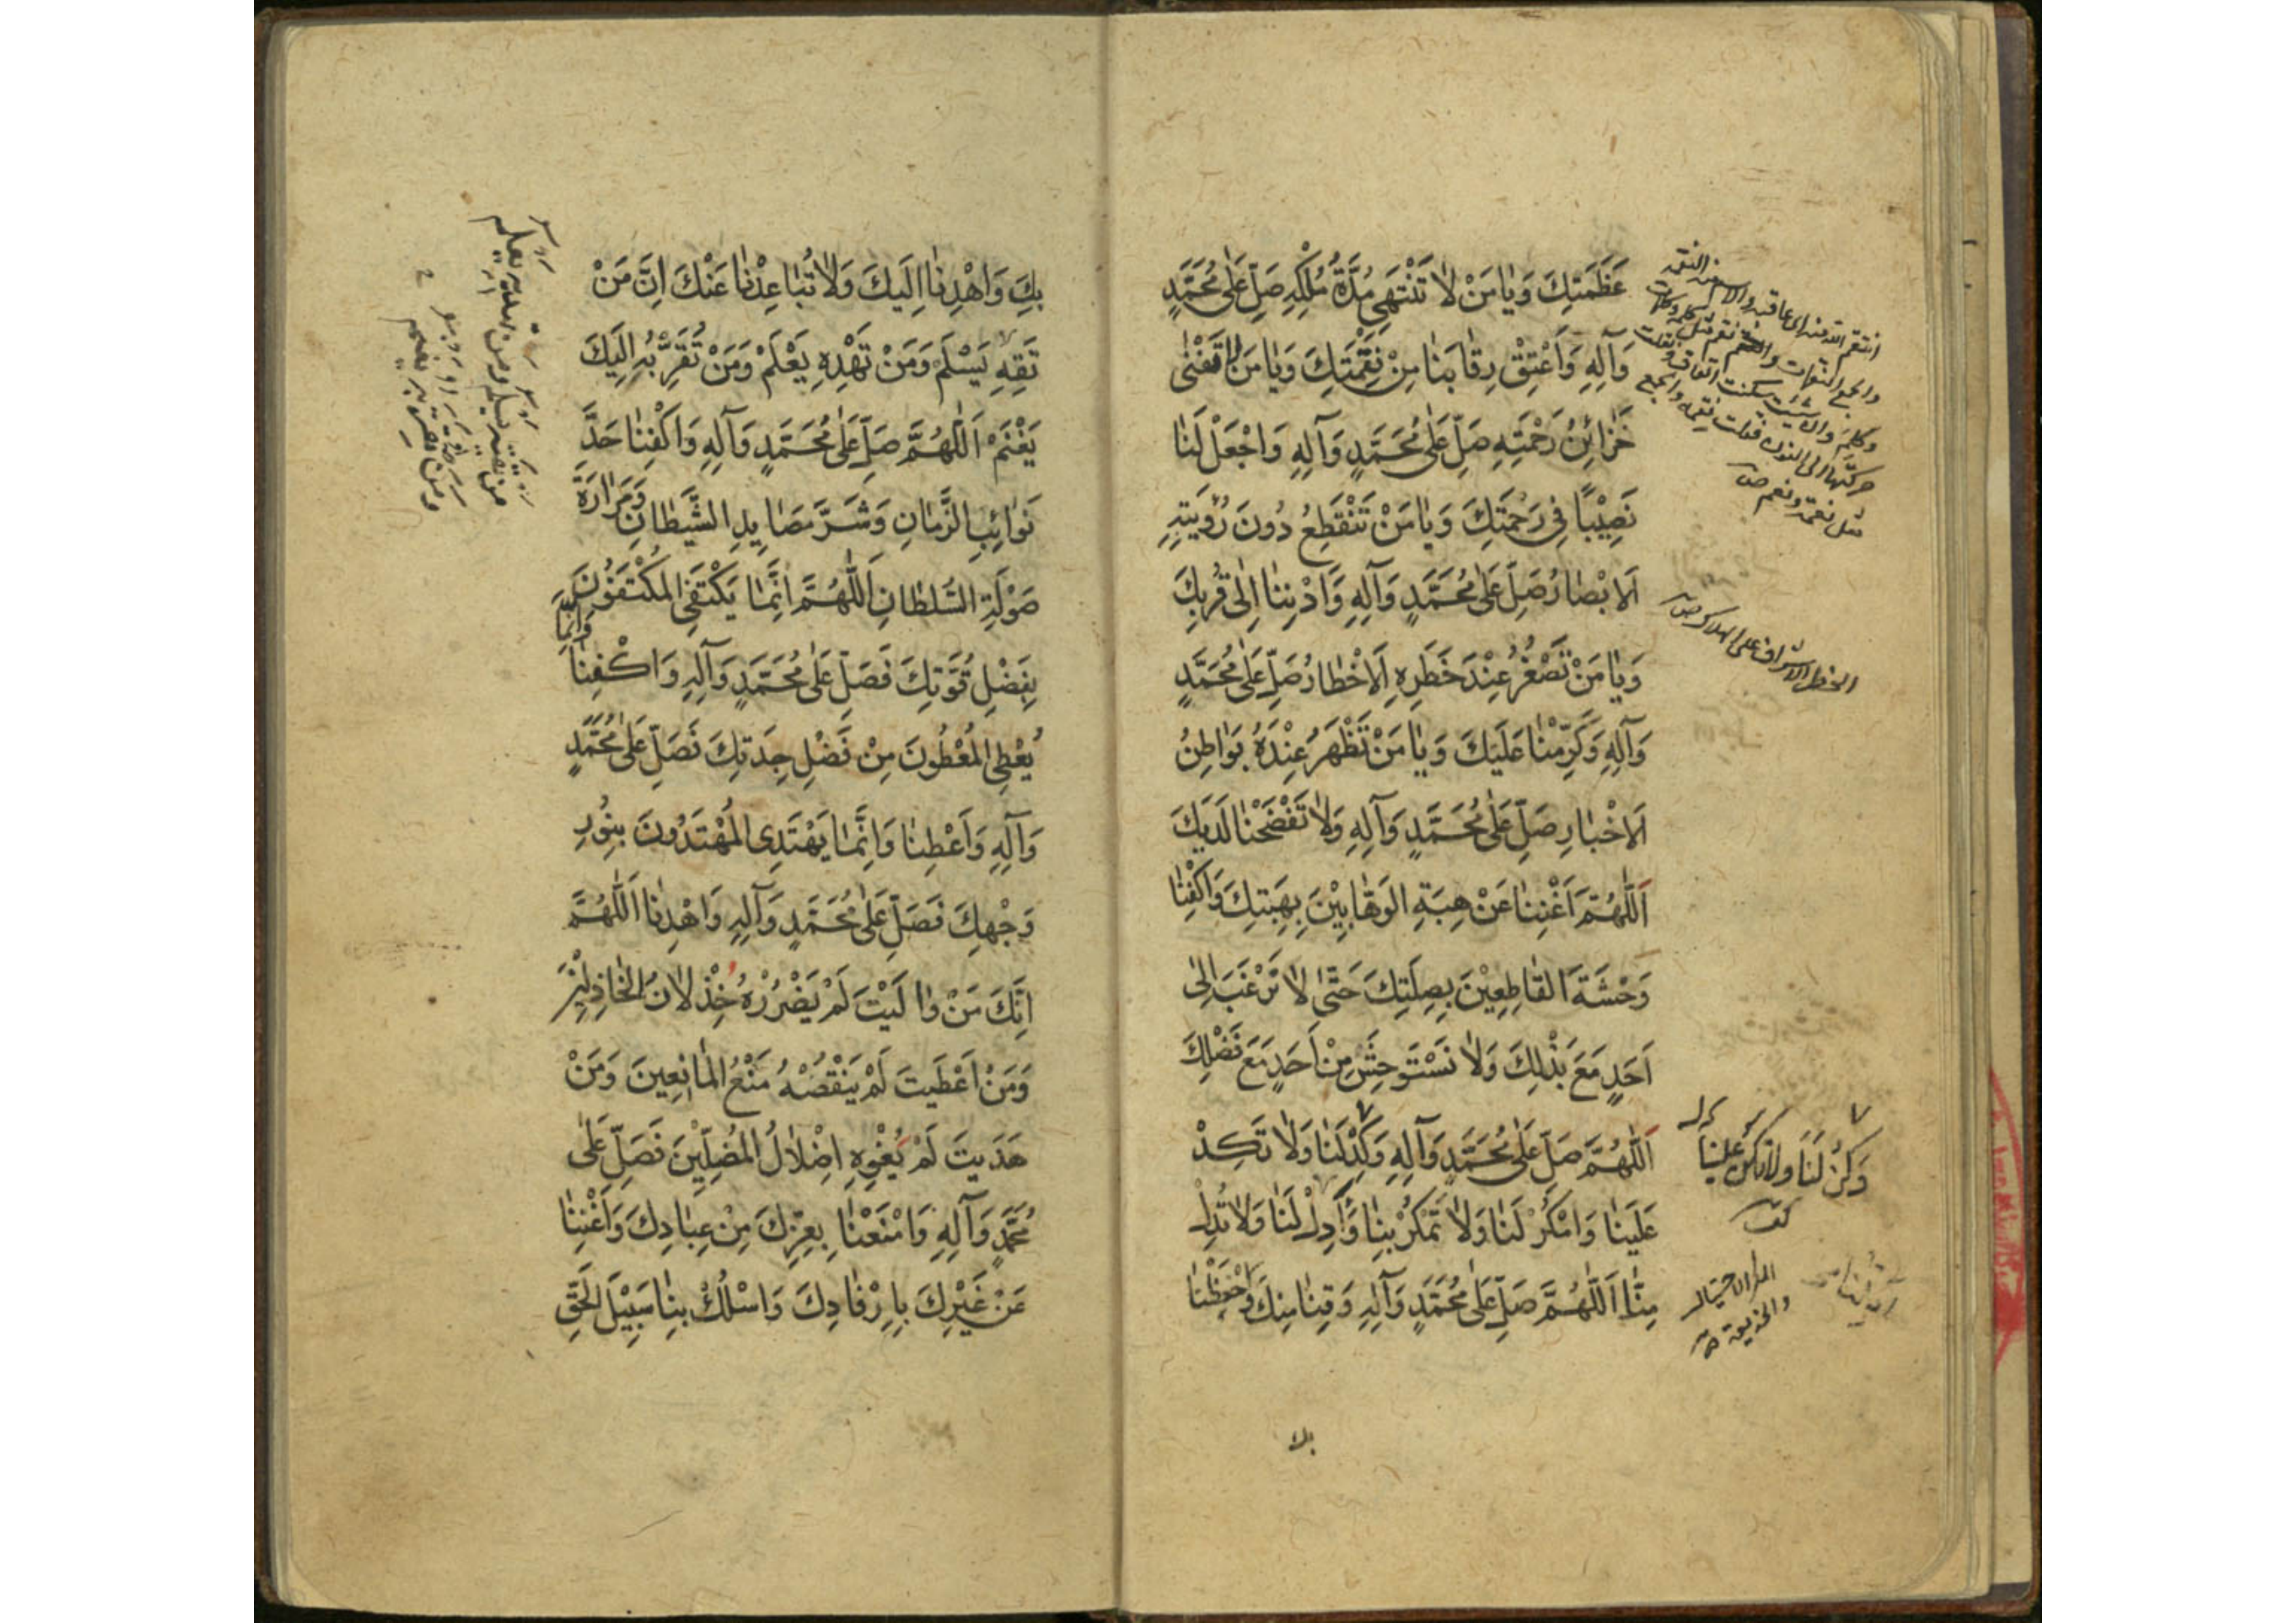 عَظَمَتِكَ وَيٰا مَنْ لاٰ تَنْتَهِي مُدَّةُ مُلْكِهِ صَلِّ عَلٰى مُحَمَّدٍ
وَآلِهِ وَاَعْتِقْ رِقٰابَنٰا مِنْ نِقْمَتِكَ وَيٰا مَنْ لاٰ تَفْنٰى
خَزٰائِنُ رَحْمَتِهِ صَلِّ عَلٰى مُحَمَّدٍ وَآلِهِ وَاجْعَلْ لَنٰا
نَصِيْبًا فِي رَحْمَتِكَ وَيٰا مَنْ تَنْقَطِعُ دُونَ رُؤْيَتِهِ
اَلاَبْصٰارُ صَلِّ عَلٰى مُحَمَّدٍ وَآلِهِ وَاَدْنِنٰا اِلٰى قُرْبِكَ
وَيٰا مَنْ تَصْغُرُ عِنْدَ خَطَرِهِ اَلاَخْطٰارُ صَلِّ عَلٰى مُحَمَّدٍ
وَآلِهِ وَكَرِّمْنٰا عَلَيْكَ وَيٰا مَنْ تَظْهَرُ عِنْدَهُ بَوٰاطِنُ
اَلاَخْبٰارِ صَلِّ عَلٰى مُحَمَّدٍ وَآلِهِ وَلاٰ تَفْضَحْنٰا لَدَيْكَ
اَللّٰهُمَّ اَغْنِنٰا عَنْ هِبَةِ الوَهّٰابِيْنَ بِهِبَتِكَ وَاكْفِنٰا
وَحْشَةَ القٰاطِعِيْنَ بِصِلَتِكَ حَتّٰى لاٰ نَرْغَبَ اِلٰى
اَحَدٍ مَعَ بَذْلِكَ وَلاٰ نَسْتَوْحِشَ مِنْ اَحَدٍ مَعَ فَضْلِكَ
اَللّٰهُمَّ صَلِّ عَلٰى مُحَمَّدٍ وَآلِهِ وَكِدْ لَنٰا وَلاٰ تَكِدْ
عَلَيْنٰا وَامْكُرْ لَنٰا وَلاٰ تَمْكُرْ بِنٰا وَاَدِلْ لَنٰا وَلاٰ تُدِلْ
مِنّٰا اَللّٰهُمَّ صَلِّ عَلٰى مُحَمَّدٍ وَآلِهِ وَقِنٰا مِنْكَ وَاحْفَظْنٰا
والجمع النقمات
مثل نعمة ونعم ص
الخطر الاشراف على الهلاك ص
وَكُنْ لَنَا وَلاَ تَكُنْ عَلَيْنَا
كف
المكر الاحتيال
والخديعة ص
بك
بِكَ وَاهْدِنٰا اِلَيْكَ وَلاٰ تُبٰاعِدْنٰا عَنْكَ اِنَّ مَنْ
تَقِهِ يَسْلَمْ وَمَنْ تَهْدِهِ يَعْلَمْ وَمَنْ تُقَرِّبْهُ اِلَيْكَ
يَغْنَمْ اَللّٰهُمَّ صَلِّ عَلٰى مُحَمَّدٍ وَآلِهِ وَاكْفِنٰا حَدَّ
نَوٰائِبِ الزَّمٰانِ وَشَرَّ مَصٰايِدِ الشَّيْطٰانِ وَمَرٰارَةَ
صَوْلَةِ السُّلْطٰانِ اَللّٰهُمَّ اِنَّمٰا يَكْتَفِي المُكْتَفُونَ
بِفَضْلِ قُوَّتِكَ فَصَلِّ عَلٰى مُحَمَّدٍ وَآلِهِ وَاكْفِنٰا وَاِنَّمٰا
يُعْطِي المُعْطُونَ مِنْ فَضْلِ جِدَتِكَ فَصَلِّ عَلٰى مُحَمَّدٍ
وَآلِهِ وَاَعْطِنٰا وَاِنَّمٰا يَهْتَدِى المُهْتَدُونَ بِنُورِ
وَجْهِكَ فَصَلِّ عَلٰى مُحَمَّدٍ وَآلِهِ وَاهْدِنٰا اَللّٰهُمَّ
اِنَّكَ مَنْ وٰالَيْتَ لَمْ يَضْرُرْهُ خِذْلاٰنُ الخٰاذِلِيْنَ
وَمَنْ اَعْطَيتَ لَمْ يَنْقُصْهُ مَنْعُ المٰانِعِينَ وَمَنْ
هَدَيتَ لَمْ يُغْوِهِ اِضْلاٰلُ المُضِلِّيْنَ فَصَلِّ عَلٰى
مُحَمَّدٍ وَآلِهِ وَامْنَعْنٰا بِعِزِّكَ مِنْ عِبٰادِكَ وَاَغْنِنٰا
عَنْ غَيْرِكَ بِاِرْفٰادِكَ وَاسْلُكْ بِنٰا سَبِيْلَ الحَقِّ